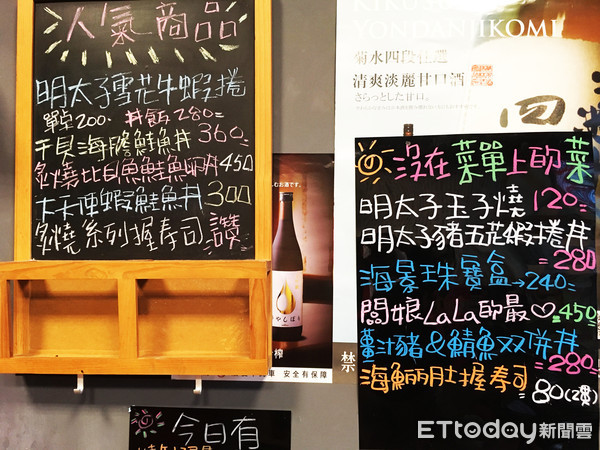 人氣商品
明太子雪花牛蝦捲
單点200. 丼飯280=
干貝海膽鮭魚丼 360=
炙燒比目魚鮭魚卵丼450
大天使蝦鮭魚丼 300
炙燒系列握壽司 讚
YONDANJIKOMI
菊水四段仕込
清爽淡麗甘口酒
さらっとした甘口。
四
没在菜單上的菜
明太子玉子燒 120=
明太子豬五花蝦捲丼
=280
海景珠寶盒→240=
闆娘LaLa的最♡=450
薑汁豬&鯖魚双併丼
=280=
海鮪肚握壽司=80(2貫)
やしぼり
榨
禁
車 安全有保障
今日有
ETtoday新聞雲